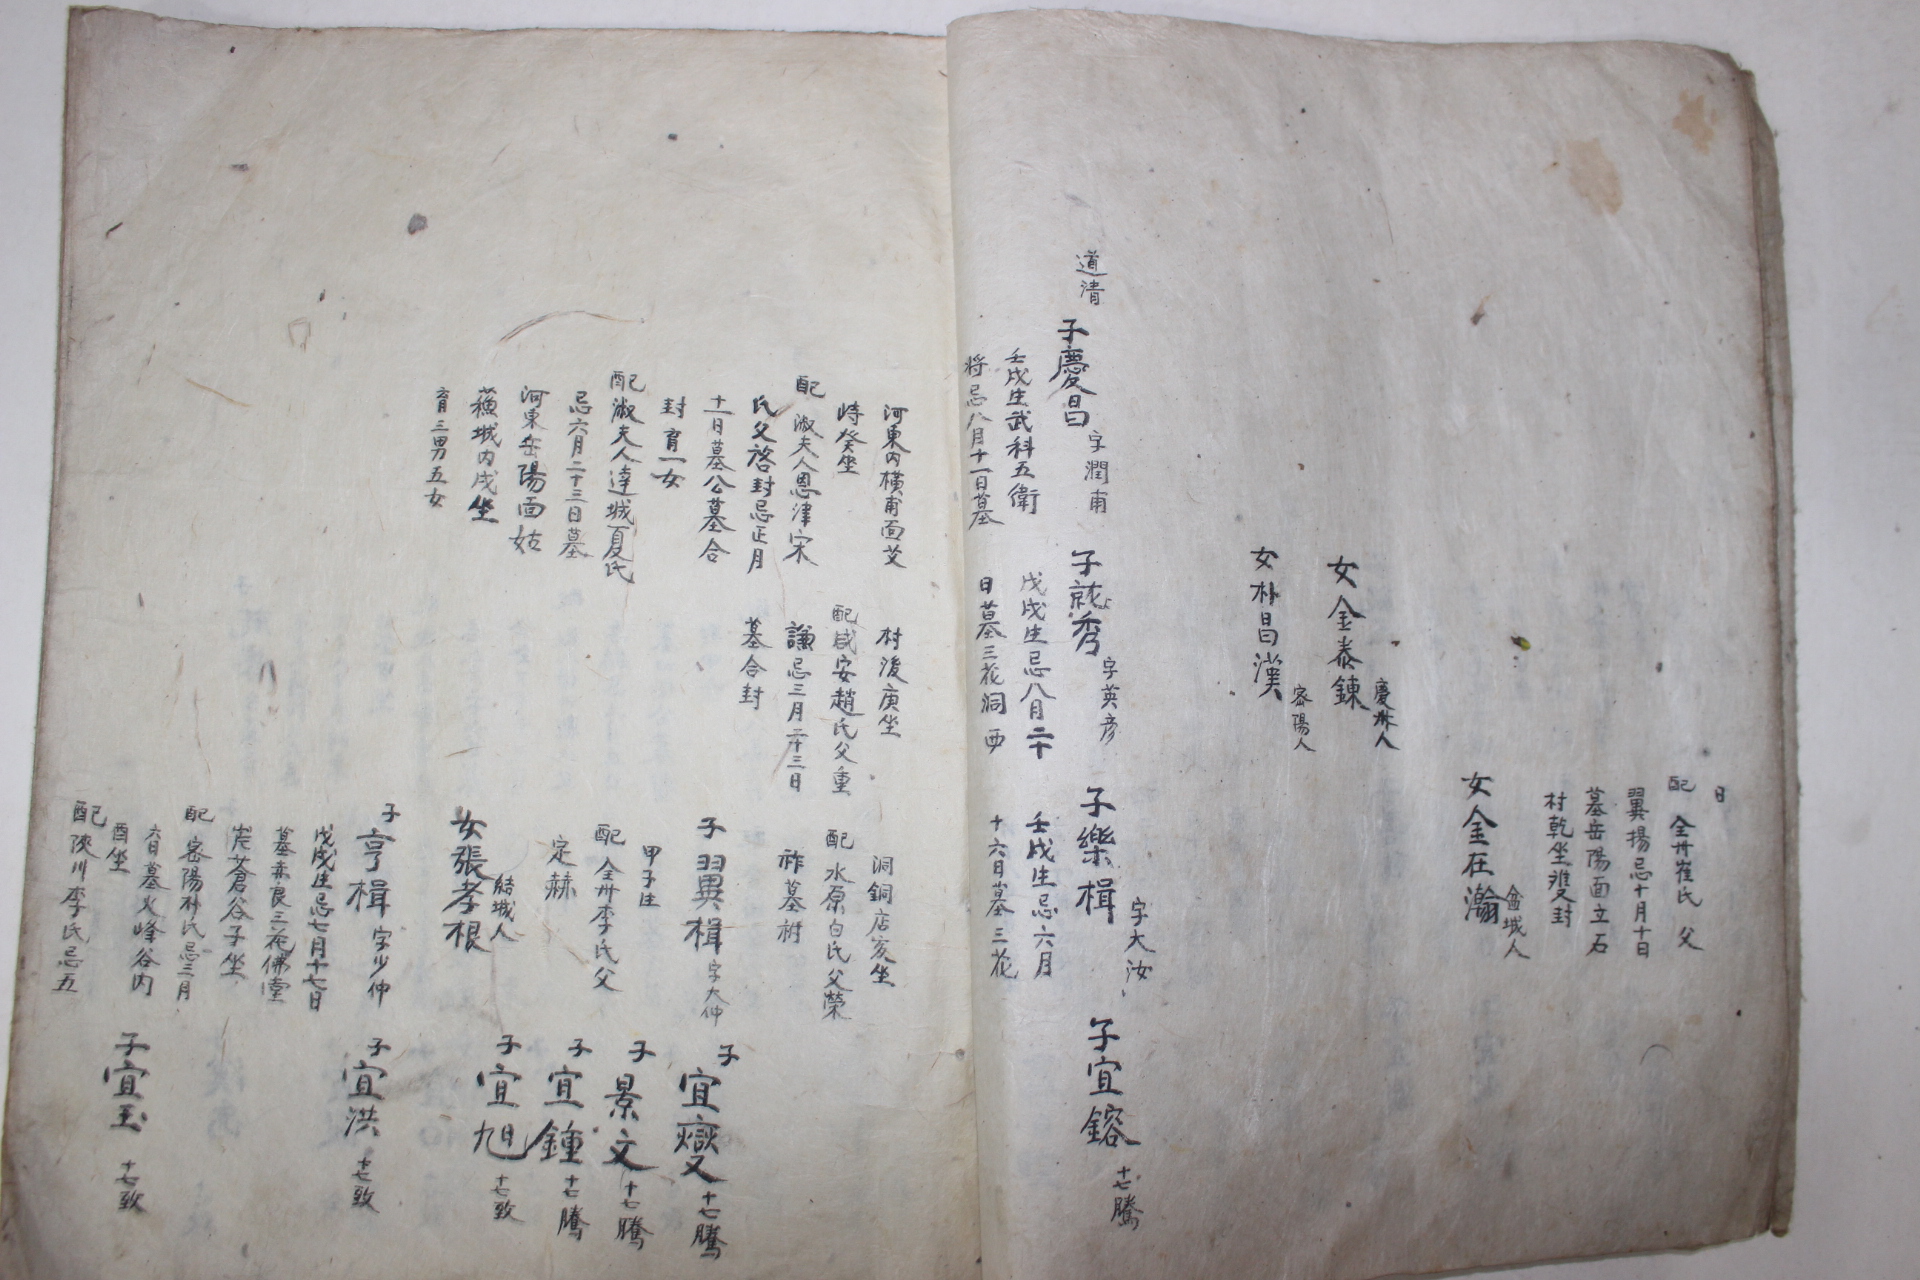 日
配 全州崔氏 父
翼揚忌十月十日
墓岳陽面立石
村乾坐雙封
女金在瀚 盆城人
女金泰鍊 慶州人
女朴昌漢 密陽人
道清
子慶昌 字潤甫
壬戌生武科五衛
將忌八月十一日墓
子就秀 字英彦
戊戌生忌八月二十
日墓三花洞西
子樂楫 字大汝
壬戌生忌六月
十六日墓三花
子宜鎔 十七騰
河東內橫甫面艾
峙癸坐
配 淑夫人恩津宋
氏父啓封忌正月
十一日墓公墓合
封育一女
配淑夫人達城夏氏
忌六月二十三日墓
河東岳陽面姑
蘓城內戌坐
育三男五女
村後庚坐
配咸安趙氏父重
謙忌三月二十三日
墓合封
洞銅店亥坐
配水原白氏父榮
祚墓祔
子翼楫 字大仲
甲子生
配全州李氏父
定赫
女張孝根 結城人
子亨楫 字少仲
戊戌生忌七月十七日
墓赤良三花佛堂
崖蒼谷子坐
配密陽朴氏忌三月
六日墓火峰谷內
酉坐
配陜川李氏忌五
子宜燮 十七騰
子景文 十七騰
子宜鍾 十七騰
子宜旭 十七致
子宜洪 十七致
子宜玉 十七致